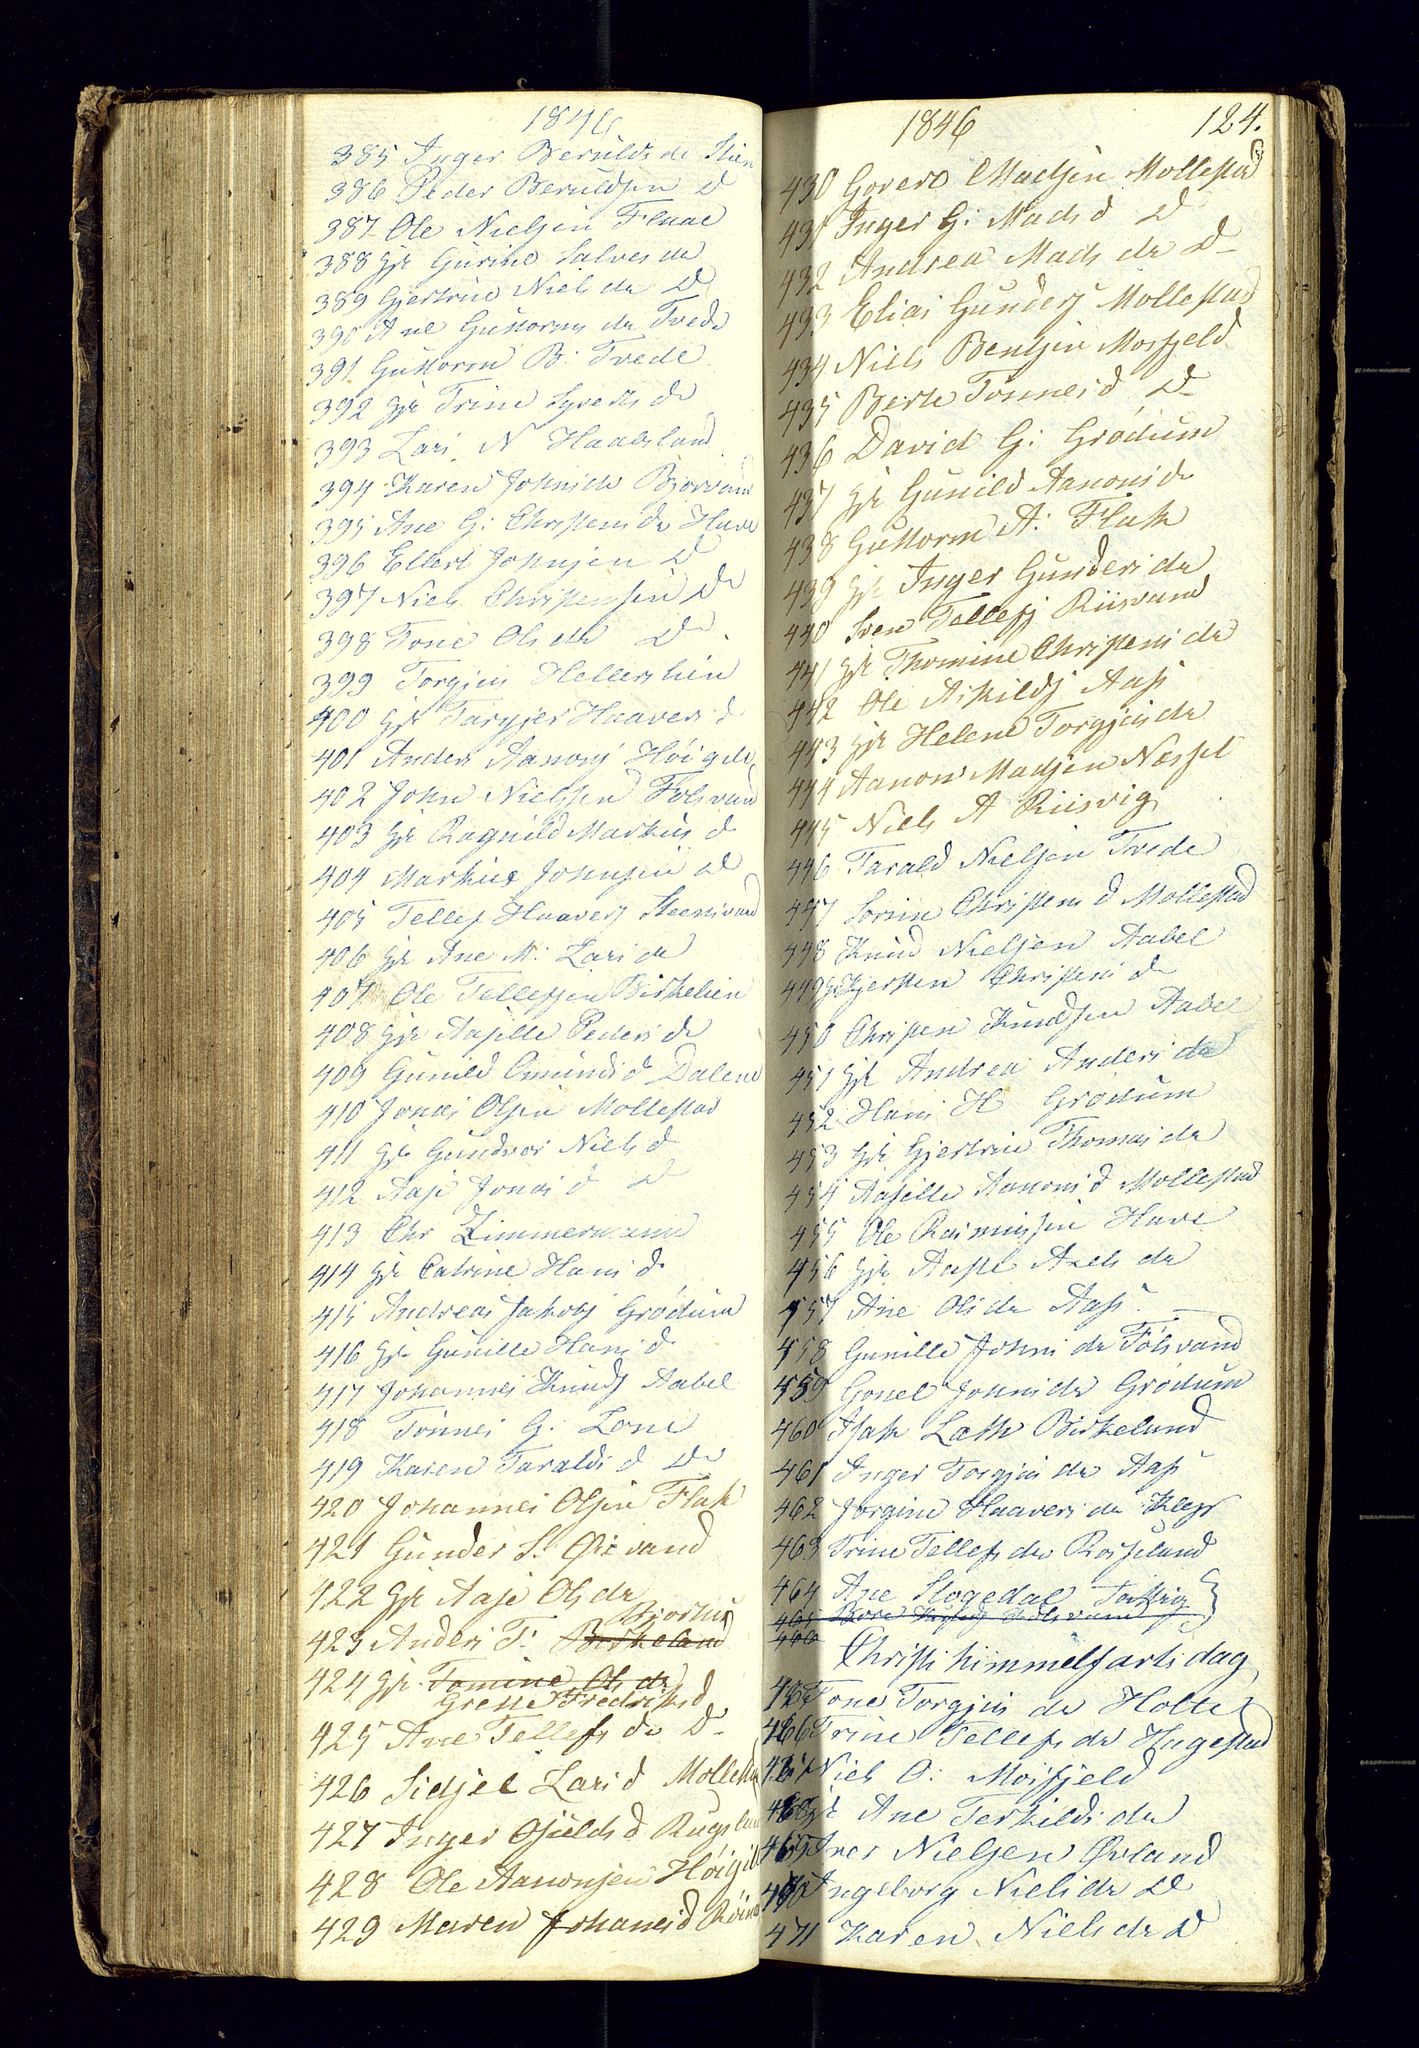 1846
385 Inger Beruldsda Stien
386 Peder Beruldsen D
387 Ole Nielsen Flaae
388 Gft Gurine Salvesda
389 Gjertrine Nielsda D
390 Ane Guttormsda Tvede
391 Guttorm B: Tvede
392 Gft Trine Syvertsda
393 Lars N Haabesland
394 Karen Johnsda Bjorvand
395 Ane G: Christensda Have
396 Ellert Johnsen D
397 Niels Christensen Do
398 Tone Olsda Do
399 Torgjus Hellerslien
400 Gft Targjer Haaversd
401 Anders Aanonsj Höigilt
402 John Nielsen Fölsvand
403 Gft Ragnild Markusd
404 Markus Johnsen D
405 Tellef Haaversj Steensvand
406 Gft Ane M: Larsda
407 Ole Tellefsen Birkelien
408 Gft Aasille Pedersda
409 Gunild Omundsd Dalene
410 Jonas Olsen Mollestad
411 Gft Gundvor Nielsd
412 Aase Jonasd D
413 Chr Zimmermann
414 Gft Catrine Hansd
415 Andreas Jakobsj Grödum
416 Gft Gunille Hansd
417 Johannes Knudsj Aabel
418 Tönnes G: Lone
419 Karen Taraldsd Do
420 Johannes Olsen Flak
421 Gunder S. Örevand
422 Gft Aase Olsda
Bjorhus
423 Anders T: Birkeland
424 Gft Tomine Olsda
Grethe Fredriksd
425 Ane Tellefsda D
426 Sidsel Larsd Mollestad
427 Inger Ojuldsd Rugsland
428 Ole Aanonsen Höigilt
429 Maren Johanesd
1846 124.
430 Govert Madsen Mollestad
431 Inger G: Madsd D
432 Andrea Madsda D
433 Elias Gundersj Mollestad
434 Niels Bentsen Mosfjeld
435 Berte Tönnesd D
436 David G: Grödum
437 Gft Gunild Aanonsda
438 Guttorm A: Flak
439 Gft Inger Gundersda
440 Sven Tellefsj Riisvand
441 Gft Thomine Christensda
442 Ole Askildsj Aas
443 Gft Helene Torgjusda
444 Aanon Madsen Næsset
445 Niels A Riisvig
446 Tarald Nielsen Tvede
447 Sörine Christensd Mollestad
448 Knud Nielsen Aabel
449 Gft Kjersten Christensd
450 Christen Knudsen Aabel
451 Gft Andrea Andersda
452 Hans H Grödum
453 Gft Gjertrine Thomasda
454 Aasille Aanonsd Mollestad
455 Ole Rasmussen Have
456 Gft Aaste Axelsda
457 Ane Olsda Aas
458 Gunille Johnsda Fölsvand
459 Gonel Johnsda Grödum
460 Isak Læk Birkeland
461 Inger Torgjusda Aas
462 Jörgine Haaversda Klep
463 Trine Tellefsda Rosseland
464 Ane Stogedal
465
466
Christi himmelfartsdag
465 Tone Torgjusda Holte
466 Trine Tellefsda Hagestad
467 Niels O: Mosfjeld
468 Gft Ane Terkildsda
469 Iver Nielsen Övland
470 Ingeborg Nielsda D
471 Karen Nielsda D